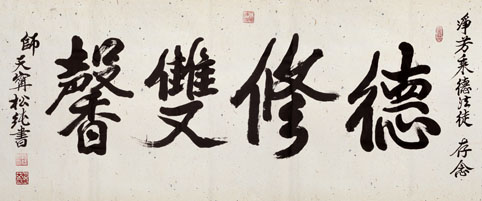 淨芳乘德法徒 存念
德修雙馨
師天寧松純書